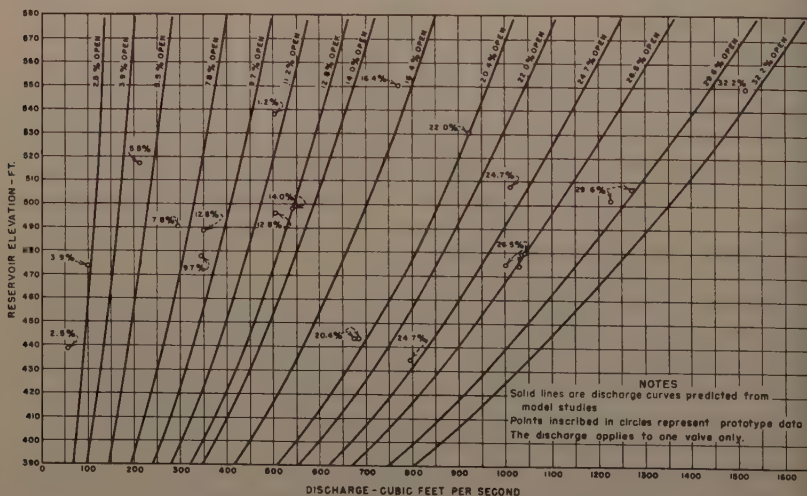 RESERVOIR ELEVATION - FT.
580
570
560
550
540
530
520
510
500
490
480
470
460
450
440
430
420
410
400
390
2.5% OPEN
3.9% OPEN
% OPEN
7.8% OPEN
9.7% OPEN
11.2% OPEN
12.8% OPEN
14.0% OPEN
16.4% OPEN
20.4% OPEN
22.0% OPEN
24.7% OPEN
26.5% OPEN
29.6% OPEN
32.2% OPEN
16.4%
32.2%
1.2%
22.0%
5.8%
24.7%
14.0%
29.6%
7.8%
12.8%
12.8%
26.5%
3.9%
9.7%
2.5%
20.4%
24.7%
NOTES
Solid lines are discharge curves predicted from
model studies
Points inscribed in circles represent prototype data
The discharge applies to one valve only.
0 100 200 300 400 500 600 700 800 900 1000 1100 1200 1300 1400 1500 1600
DISCHARGE - CUBIC FEET PER SECOND